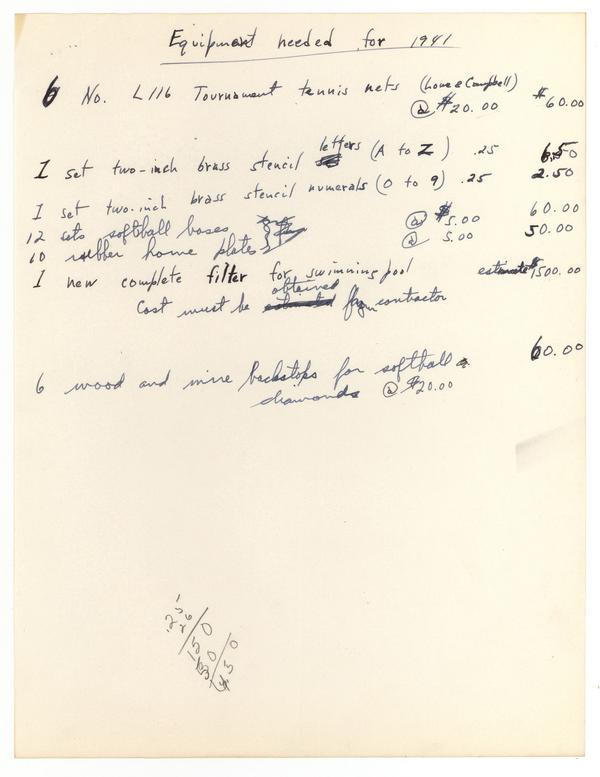 Equipment needed for 1941
6 No. L116 Tournament tennis nets (Lowe & Campbell)
@ $20.00 $60.00
letters
1 set two-inch brass stencil (A to Z) .25 6.50
1 set two-inch brass stencil numerals (0 to 9) .25 2.50
12 sets softball bases @ $5.00 60.00
10 rubber home plates @ 5.00 50.00
1 new complete filter for swimming pool estimate $1500.00
obtained
Cost must be estimated from contractor
6 wood and wire backstops for softball 60.00
diamonds @ $20.00
.25
26
150